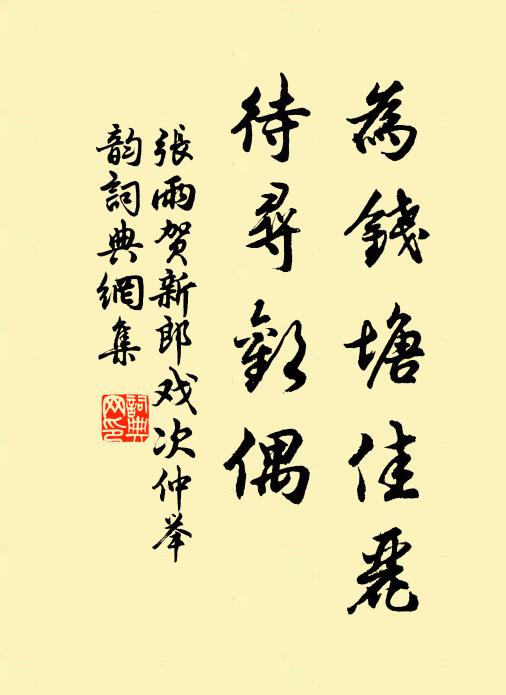 為錢塘佳麗
待尋歡偶
張雨賀新郎戏次仲举
韵詞典網集
詞典网印